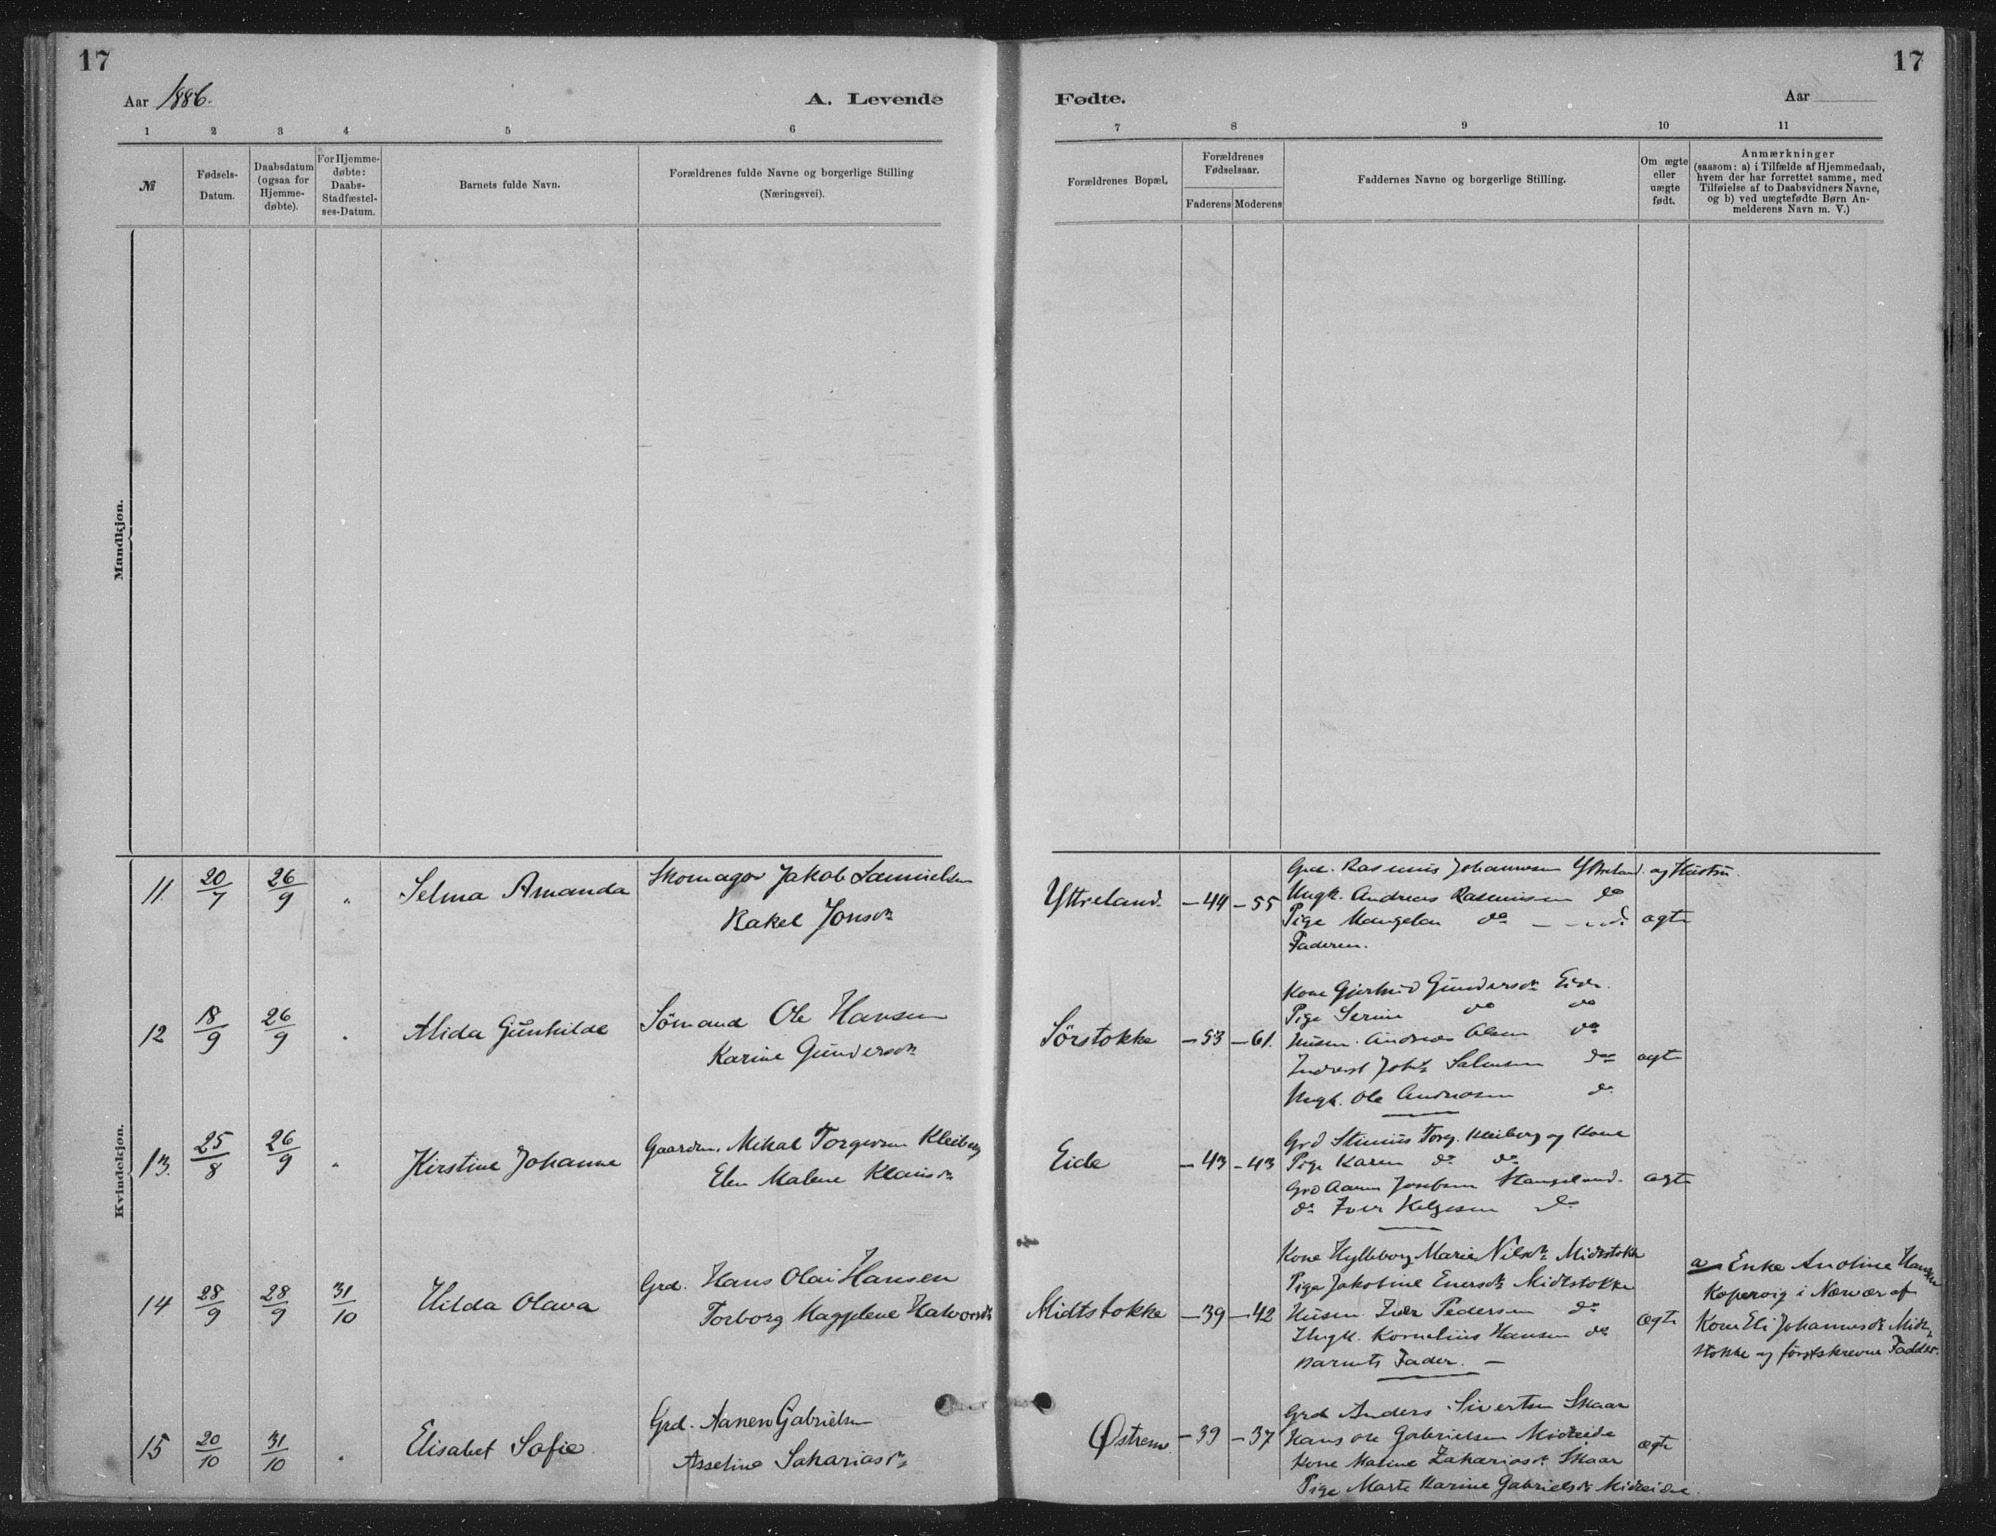 17
17
Aar 1886.
A. Levende
Fødte.
Aar
1 2 3 4 5 6
7 8 9 10 11
№
Fødsels-
Datum.
Daabsdatum
(ogsaa for
Hjemme-
døbte).
For Hjemme-
døbte:
Daabs-
Stadfæstel-
ses-Datum.
Barnets fulde Navn.
Forældrenes fulde Navne og borgerlige Stilling
(Næringsvei).
Forældrenes Bopæl.
Forældrenes
Fødselsaar.
Faderens Moderens
Faddernes Navne og borgerlige Stilling.
Om ægte
eller
uægte
født.
Anmærkninger
(saasom: a) i Tilfælde af Hjemmedaab,
hvem der har forrettet samme, med
Tilføielse af to Daabsvidners Navne,
og b) ved uægtefødte Børn An-
melderens Navn m. V.)
Mandkjøn.
Kvindekjøn.
11. 20/7 26/9 "
Selma Amanda
Skomager Jakob Samuelsen
Rakel Jonsdr
Yttreland. -44 -55
Grd. Rasmus Johannesen Yttreland og Hustru.
Ungk. Andreas Rasmussen do
Pige do
Faderen.
ægte
12 18/9 26/9 "
Alida Gunhilde
Sömand Ole Hansen
Karine Gundersdr
Sørstokke -53 -61.
Kone Gjertrud Gundersdr Eide.
Pige Serine do do
Husm. Andreas Olsen do
Salomonsen do
Ungk. Ole Andreasen do
ægte
13. 25/8 26/9 "
Kirstine Johanne
Gaardm. Mikal Torgersen Kleiberg
Elen Malene Klausdr
Eide -43 -43
Grd Torg. Kleiberg og Kone
Pige Karen do do
Grd Aanen Stangeland.
do Iver Helgesen do
ægte
14 28/9 28/9 31/10
Hilda Olava
Grd. Hans Olai Hansen
Torborg Magdelene Halvorsdr
Midtstokke -39 -42
Kone Hylleborg Marie Nilsdr Midtstokke
Pige Jakobine Enersdr Midtstokke
Husm. Iver Pedersen do
Ungk. Kornelius Hansen do
Barnets Fader. -
ægte
a Enke Anoline Hansen
Kopervig i Nærvær af
Kone Eli Johannesdr Midt-
stokke og förstskrevne Fadder.
15 20/10 31/10 "
Elisabet Sofie.
Grd. Aanen Gabrielsen
Asseline Sakariasdr
Østrem -39 -37
Grd Anders Sivertsen Skaar
Hans Ole Gabrielsen Midteide
Kone Malene Zakariasdr Skaar
Pige Marte Karine Gabrielsdr Midteide.
ægte